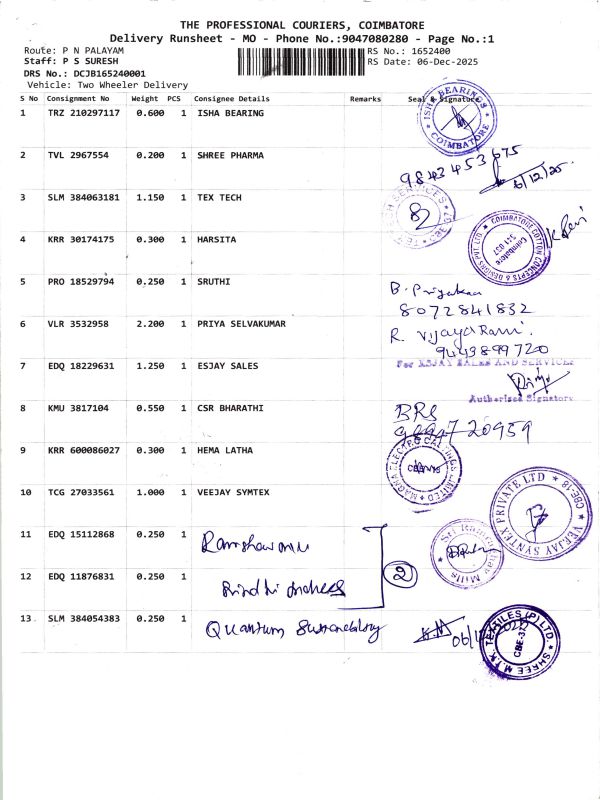 THE PROFESSIONAL COURIERS, COIMBATORE
Delivery Runsheet - MO - Phone No.:9047080280 - Page No.:1
Route: P N PALAYAM
RS No.: 1652400
Staff: P S SURESH
RS Date: 06-Dec-2025
DRS No.: DCJB165240001
Vehicle: Two Wheeler Delivery
S No Consignment No Weight PCS Consignee Details Remarks Seal & Signature
1 TRZ 210297117 0.600 1 ISHA BEARING
ISHA BEARINGS COIMBATORE
2 TVL 2967554 0.200 1 SHREE PHARMA
9843453675
6/12/25
3 SLM 384063181 1.150 1 TEX TECH
4 KRR 30174175 0.300 1 HARSITA
COIMBATORE COTTON CONCEPTS & DESIGNS PVT. LTD
Coimbatore
K Revi
5 PRO 18529794 0.250 1 SRUTHI
8072841832
6 VLR 3532958 2.200 1 PRIYA SELVAKUMAR
R. Vijaya Rani.
9443899720
7 EDQ 18229631 1.250 1 ESJAY SALES
For ESJAY SALES AND SERVICES
Authorised Signatory
8 KMU 3817104 0.550 1 CSR BHARATHI
BRS
9 KRR 600086027 0.300 1 HEMA LATHA
10 TCG 27033561 1.000 1 VEEJAY SYMTEX
VEEJAY SYNTEX PRIVATE LTD
CBE-18
11 EDQ 15112868 0.250 1
12 EDQ 11876831 0.250 1
2
13 SLM 384054383 0.250 1 Quantum
SHREE M.T.K. TEXTILES (P) LTD.